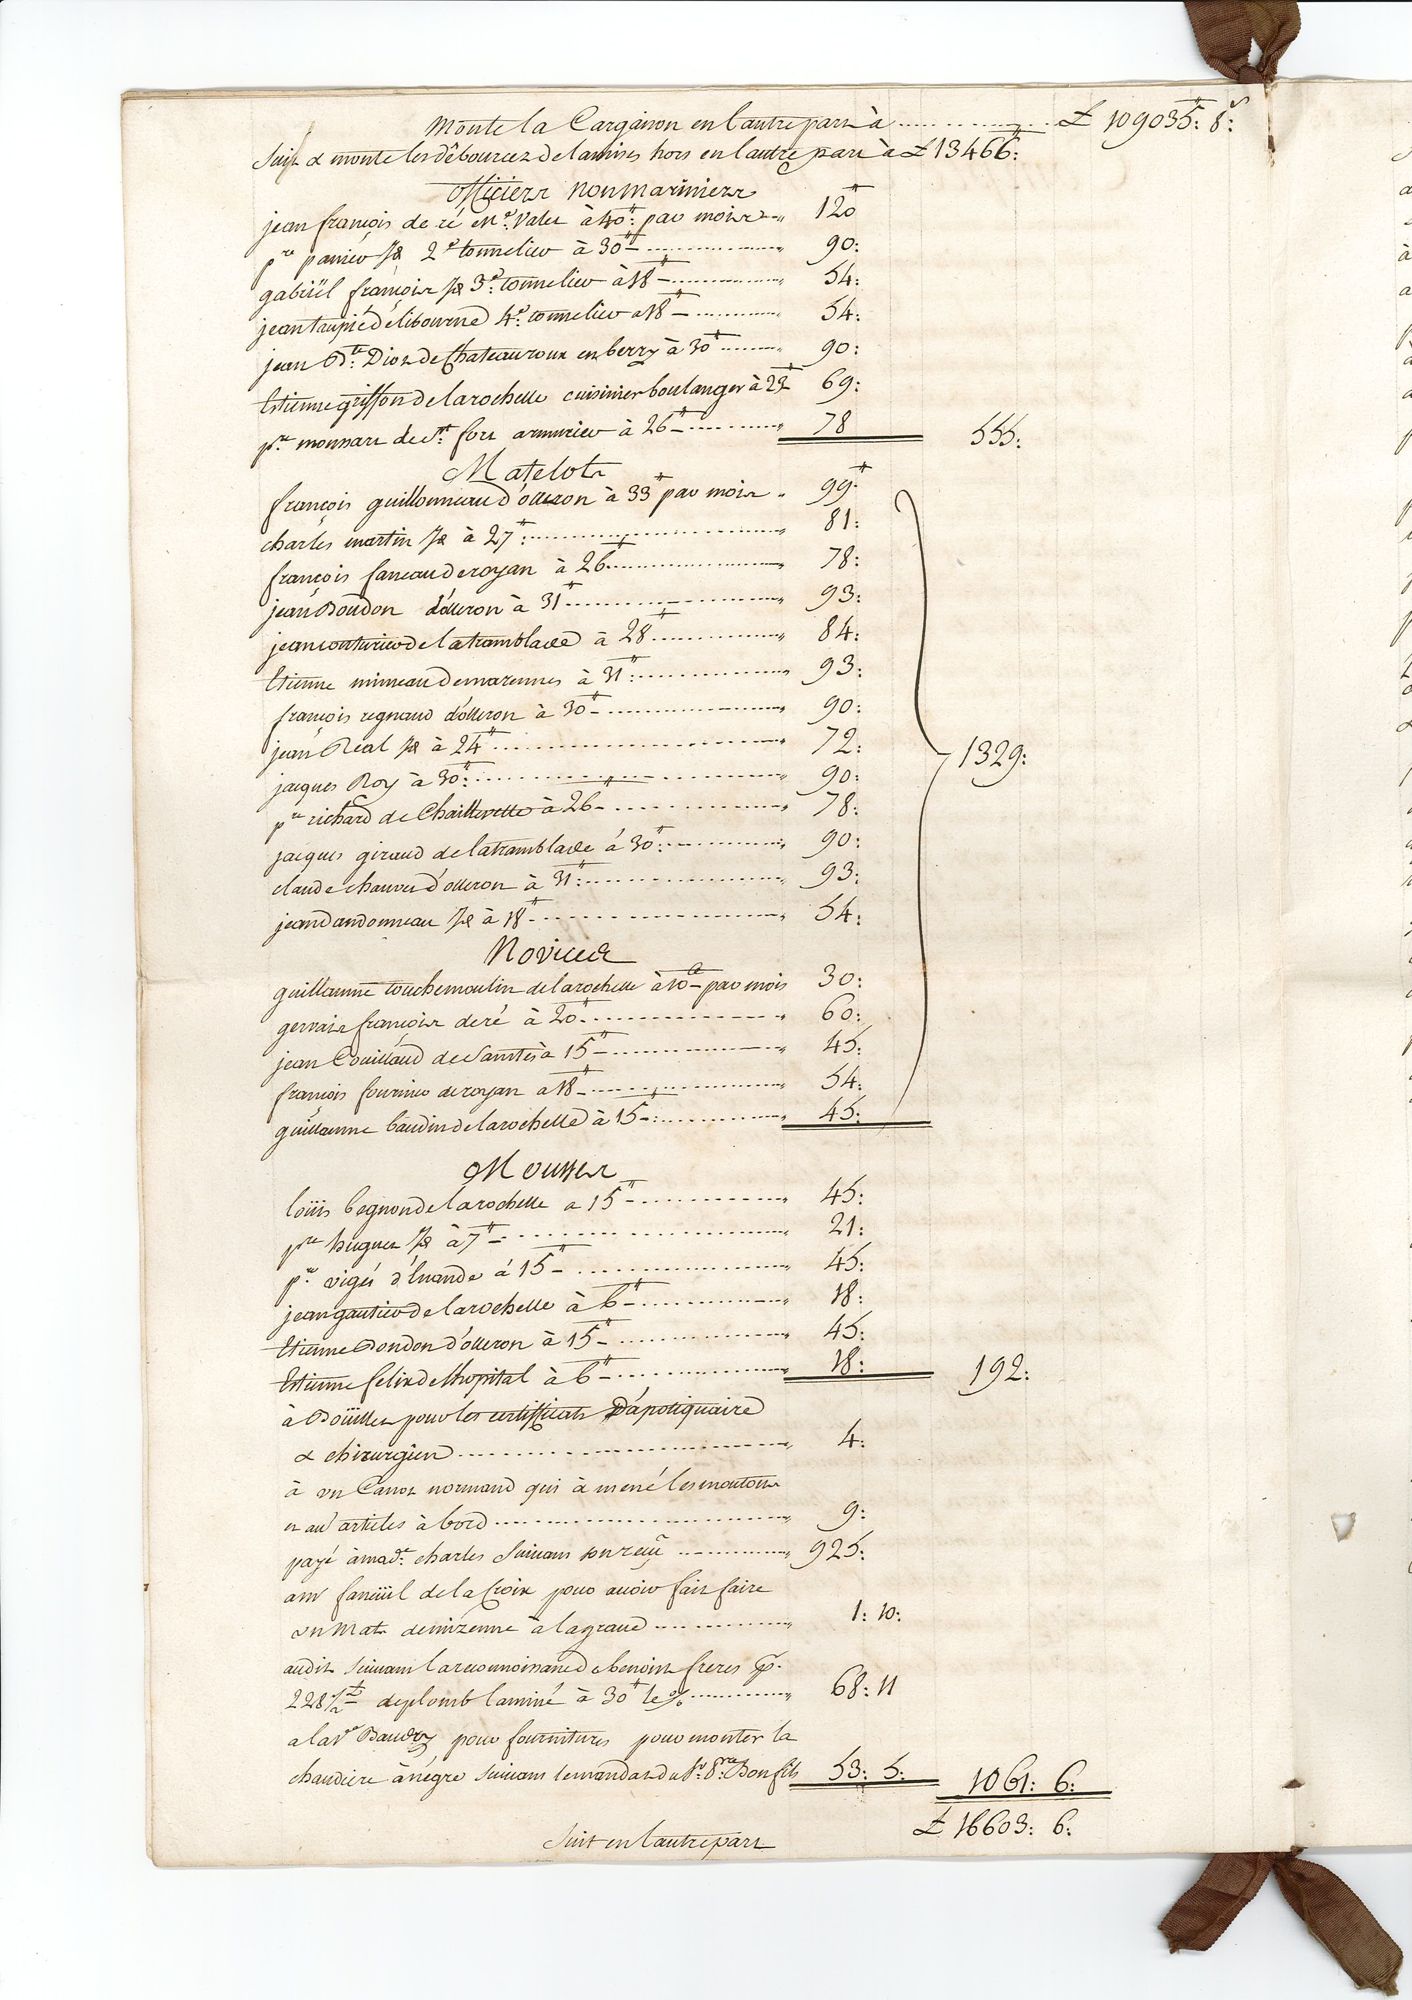 Monte la Cargaison en lautre part à .......... £ 109035ʰ: 8ˢ:
Suit & monte les débourcez de lamises hors en lautre part à £ 13466ʰ:
officiers non mariniers
jean françois de ré Mᵉ. Valet à 40ʰ: par mois 120ʰ
pʳᵉ panier 2ᵉ tonnelier à 30ʰ 90:
gabriël françois 3ᵉ. tonnelier à 18ʰ 54:
jean taupié de libourne 4ᵉ. tonnelier a 18ʰ 54:
jean Bᵗᵉ: Dion de Chateauroux en berry à 30ʰ 90:
Estienne griffon de larochelle cuisinier boulanger à 23ʰ 69:
pʳᵉ monnart de Sᵗ: fort armurier à 26ʰ 78 555:
Matelots
françois guillonneau d'olleron à 33ʰ par mois 99ʰ
charles martin à 27ʰ: 81:
françois faneau de royan à 26ʰ 78:
jean Doudon d'olleron à 31ʰ 93:
jean couturier de latramblade à 28ʰ 84:
Etienne mineau de marennes à 31ʰ: 93:
françois regnaud d'olleron à 30ʰ 90:
jean Réal à 24ʰ 72:
jacques Roy à 30ʰ: 90: 1329:
pʳᵉ richard de Chaillevette à 26ʰ 78:
jacques giraud de latramblade á 30ʰ: 90:
claude chauvet d'olleron à 31ʰ: 93:
jean dandonneau à 18ʰ 54:
Novices
guillaume touchemoulin de larochelle à 10ʰ par mois 30:
gervais françois de ré à 20ʰ 60:
jean Couillaud de Saintes à 15ʰ 45:
françois fournier de royan a 18ʰ 54:
guillaume baudin de larochelle à 15ʰ 45:
Mousses
loüis begnon de larochelle a 15ʰ 45:
pʳᵉ hugues à 7ʰ 21:
pʳᵉ vigés d'huande á 15ʰ 45:
jean gautier de larochelle à 6ʰ 18:
Etienne Dondon d'olleron à 15ʰ 45:
Estienne felix de lhopital à 6ʰ 18: 192:
à Doüillet pour les certifficats D'apotiquaire
& chirurgien 4:
à un Canot normand qui à mené les moutons
et auˣ articles à bord 9:
payé à madᵉ. charles Suivant son reçu 925:
a mʳ faneüil de la Croix pour avoir fait faire
un Mat de mizenne à la grave 1: 10:
audit Suivant la reconnoissance de benoist freres pʳ.
228 ½ ₶ de plomb laminé à 30ʰ le % 68: 11
a la vᵛᵉ Baudry pour fournitures pour monter la
chaudiere à négre Suivant le mandat du Sʳ: Bonfils 53: 5: 1061: 6:
Suit en lautre part £ 16603: 6: